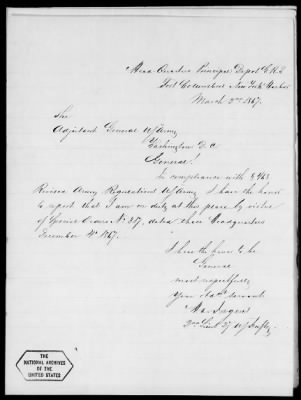 Head Quarters Principal Depot G.R.S.
Fort Columbus New York Harbor
March 2nd 1867.
The
Adjutant General U.S. Army
Washington D.C.
General!
In compliance with § 468
Revised Army Regulations U.S. Army I have the honor
to report that I am on duty at this place by virtue
of Special Orders No. 317, dated these Headquarters
December 1867.
I have the honor to be
General
most respectfully
Your Obdt servant
2nd Lieut 27 U.S. Infty
THE
NATIONAL ARCHIVES
OF THE
UNITED STATES